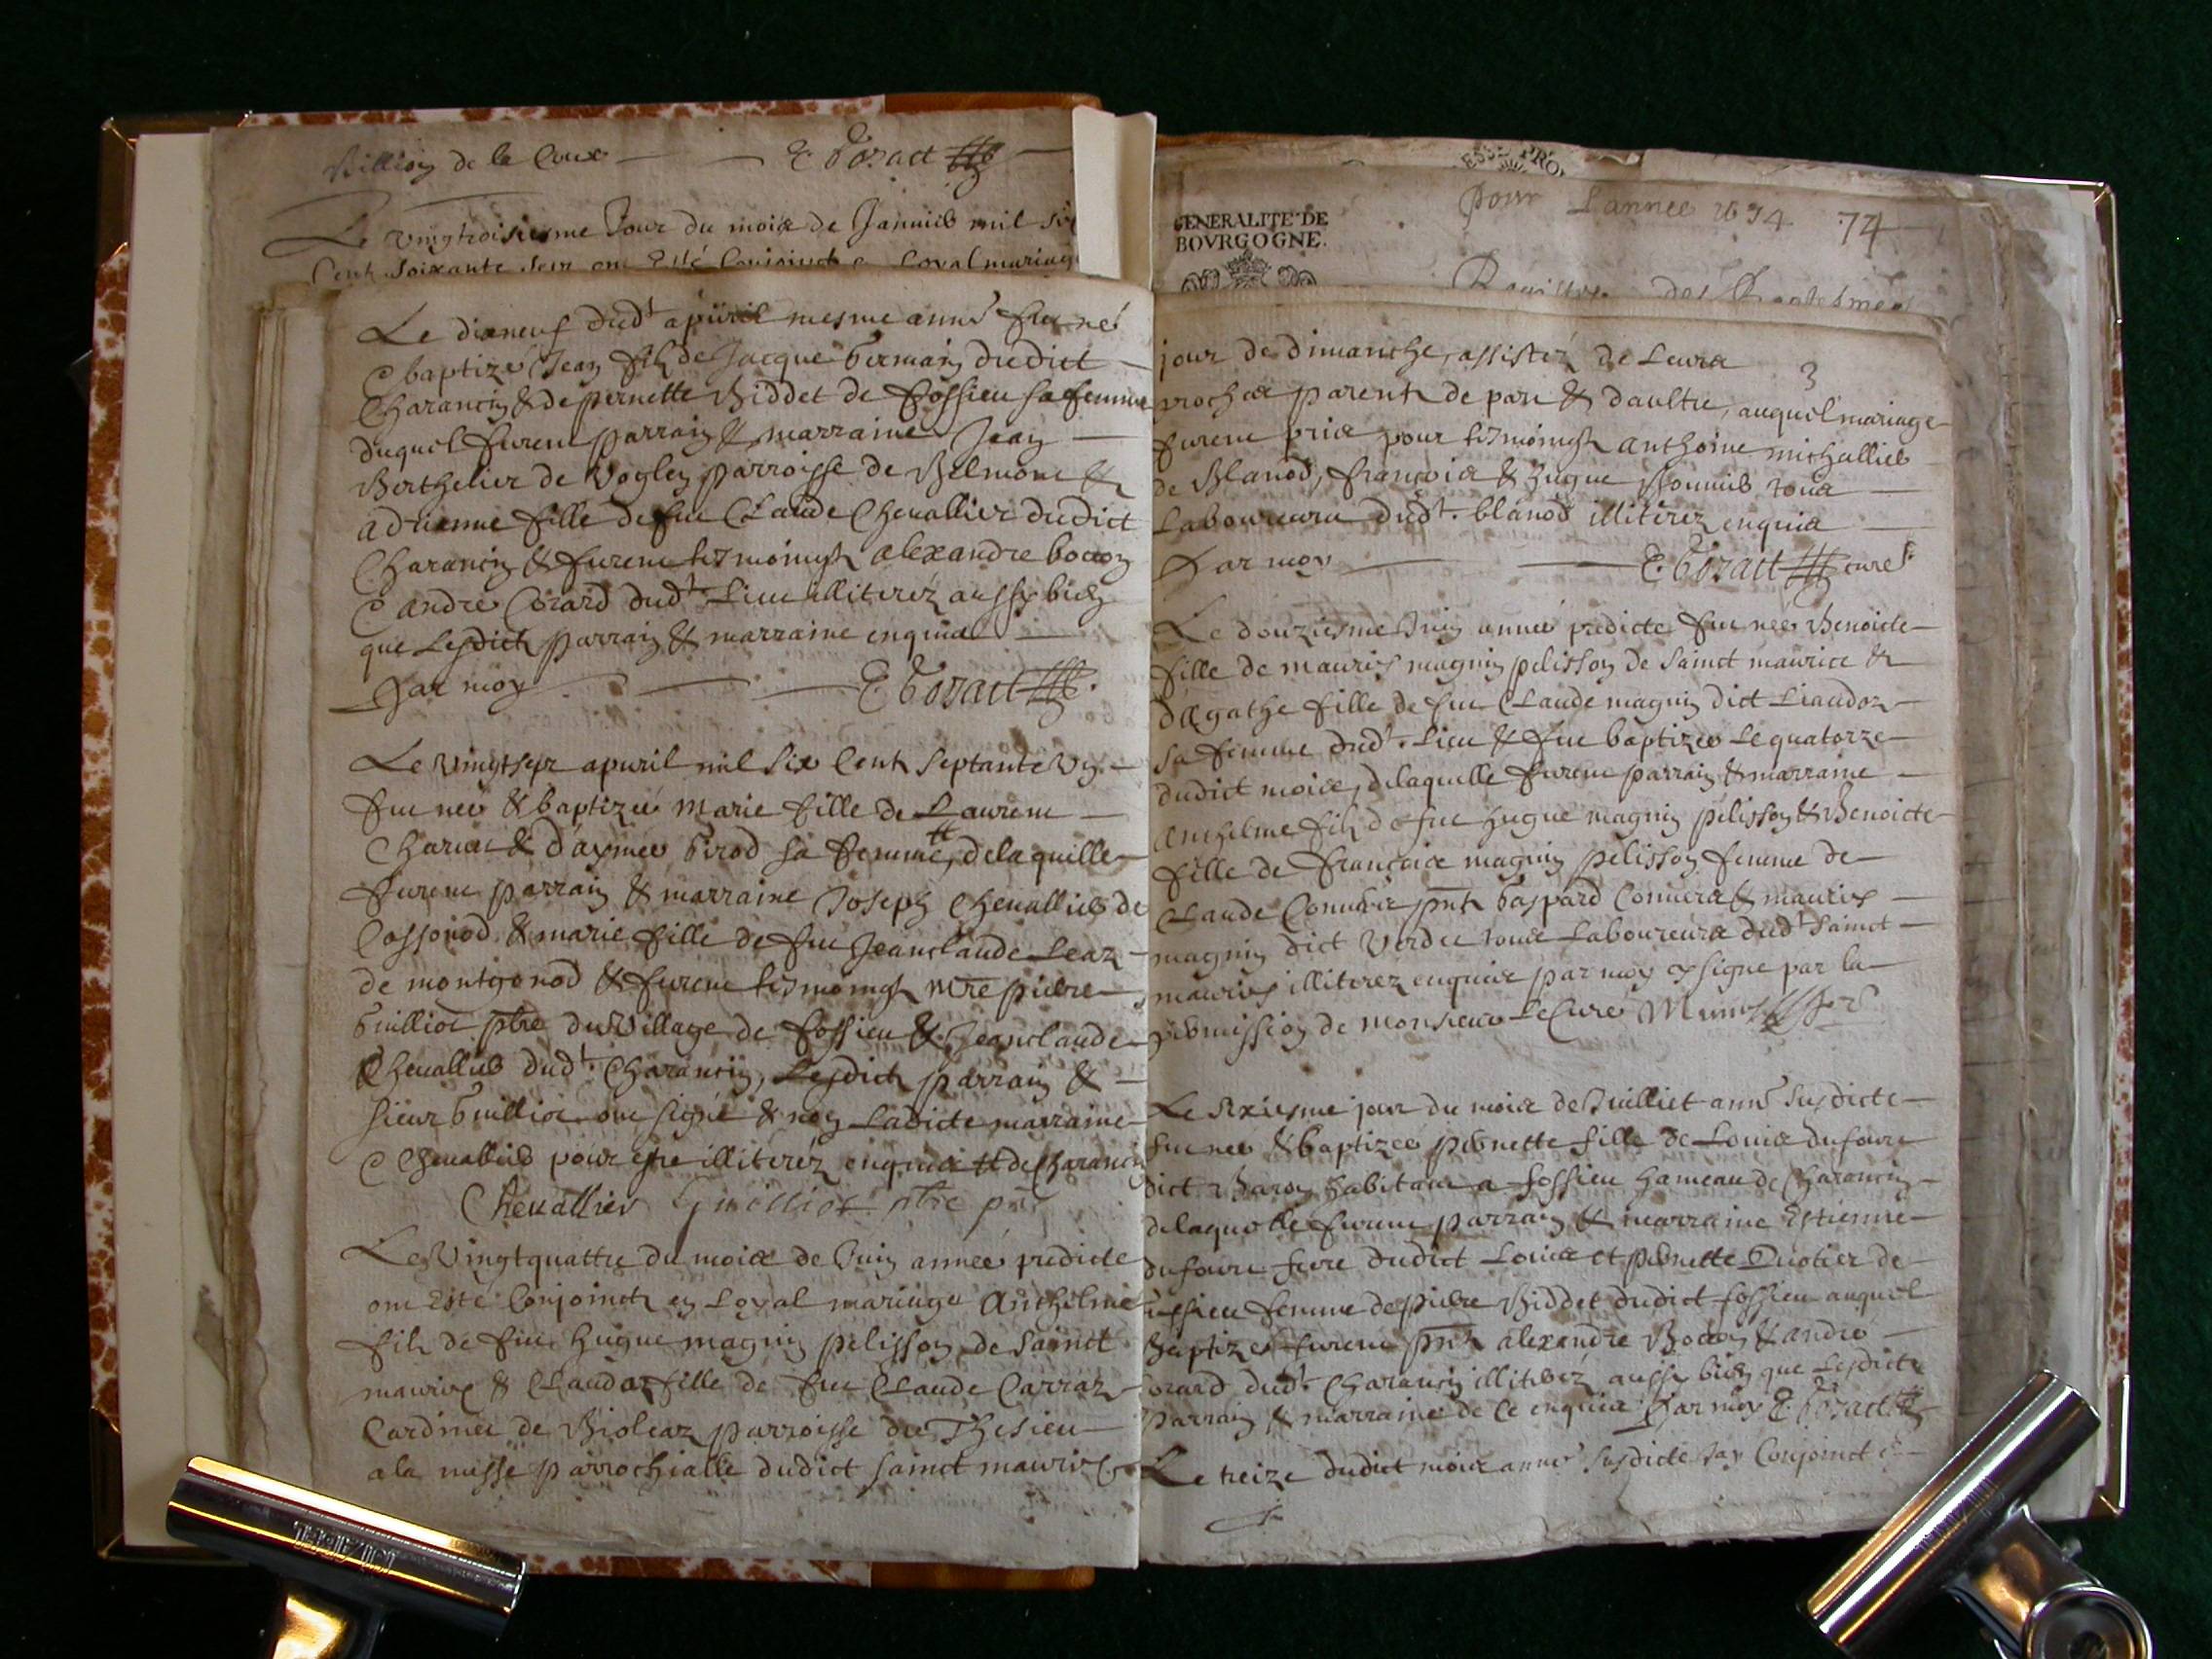 Billion de la Coux
Le vingtroisiesme Jour du mois de Januier mil six
Cent soixante sept ont Esté Conioinct e Loyal mariage
Le dixneuf dud.t apuril mesme anné fut né
& baptizé Jean fils de Jacque Germain dudict
Charancin & de pernette Biddet de fossieu sa femme
duquel furent parrain & marraine Jean
Berthelier de Voglen parroisse de Belmont &
adrianne fille de feu Claude Cheuallier dudict
Charancin & furent tesmoingts alexandre bocon
& andre Corard dud.t Lieu illiterez aussy bien
que Lesdicts parrain & marraine enquis
Par moy
Le vingtsept apuril mil six Cent septante
fut neé & baptizeé Marie fille de Laurent
Charuet & d'aymeé Girod sa femme, delaquelle
furent parrain & marraine Joseph Cheuallier de
Cossonod & marie fille de feu Jeanclaude Lear
de montgonod & furent tesmoingts mre pierre
Guilliot pbre du Village de fossieu & Jeanclaude
Cheuallier dud.t Charancin, Lesdict parrain &
sieur Guilliot ont signé & non Ladicte marraine
& Cheuallier pour estre illiterez enquis # de Charancin
Cheuallier Guilliot pbre
Le Vingtquattre du mois de Juin anneé predicte
ont Esté Conjoincts en Loyal mariage Anthelme
fils de feu hugue magnin pelisson de Sainct
mauris & Clauda fille de feu Claude Carraz
Cardinet de Violeaz parroisse de Thesieu
a la messe parrochialle dudict sainct mauris
GENERALITE DE
BOVRGOGNE.
Pour L'annee 1674 74
Regitre des Baptesmes
jour de dimanche, assistez de Leurs
3
proches parents de part & daultre, auquel mariage
furent pris pour tesmoingts anthoine michallier
de Blanod, francois & hugue Bonnier tous
Laboureurs dud.t blanod illiterez enquis
Par moy curé
Le douziesme Juin anneé predicte fut neé Benoicte
fille de mauris magnin pelisson de Sainct maurice &
d'Agathe fille de feu Claude magnin dict Liaudoz
sa femme dud.t Lieu & fut baptizeé Le quatorze
dudict mois, delaquelle furent parrain & marraine
Anthelme fils de feu hugue magnin pelisson & Benoicte
fille de francois magnin pelisson femme de
Claude Conuers pnts Gaspard Conuers & mauris
magnin dict Verdet tous Laboureurs dud.t Sainct
mauris illiterez enquis par moy & signé par la
permission de monsieur Le Curé
Le sixiesme jour du mois de Juilliet anné susdicte
fut neé & baptizeé pernette fille de Louis dufour
dict Baron habitant a fossieu hameau de Charancin
delaquelle furent parrain & marraine Estienne
dufour frere dudict Louis et pernette de
fossieu femme de pierre Biddet dudict fossieu auquel
Baptize furent pnts alexandre Bocon & andré
Corard dud.t Charancin illiterez aussy bien que Lesdicts
parrain & marraine de Ce enquis Par moy
Le treize dudict mois anné susdicte jay Conjoinct